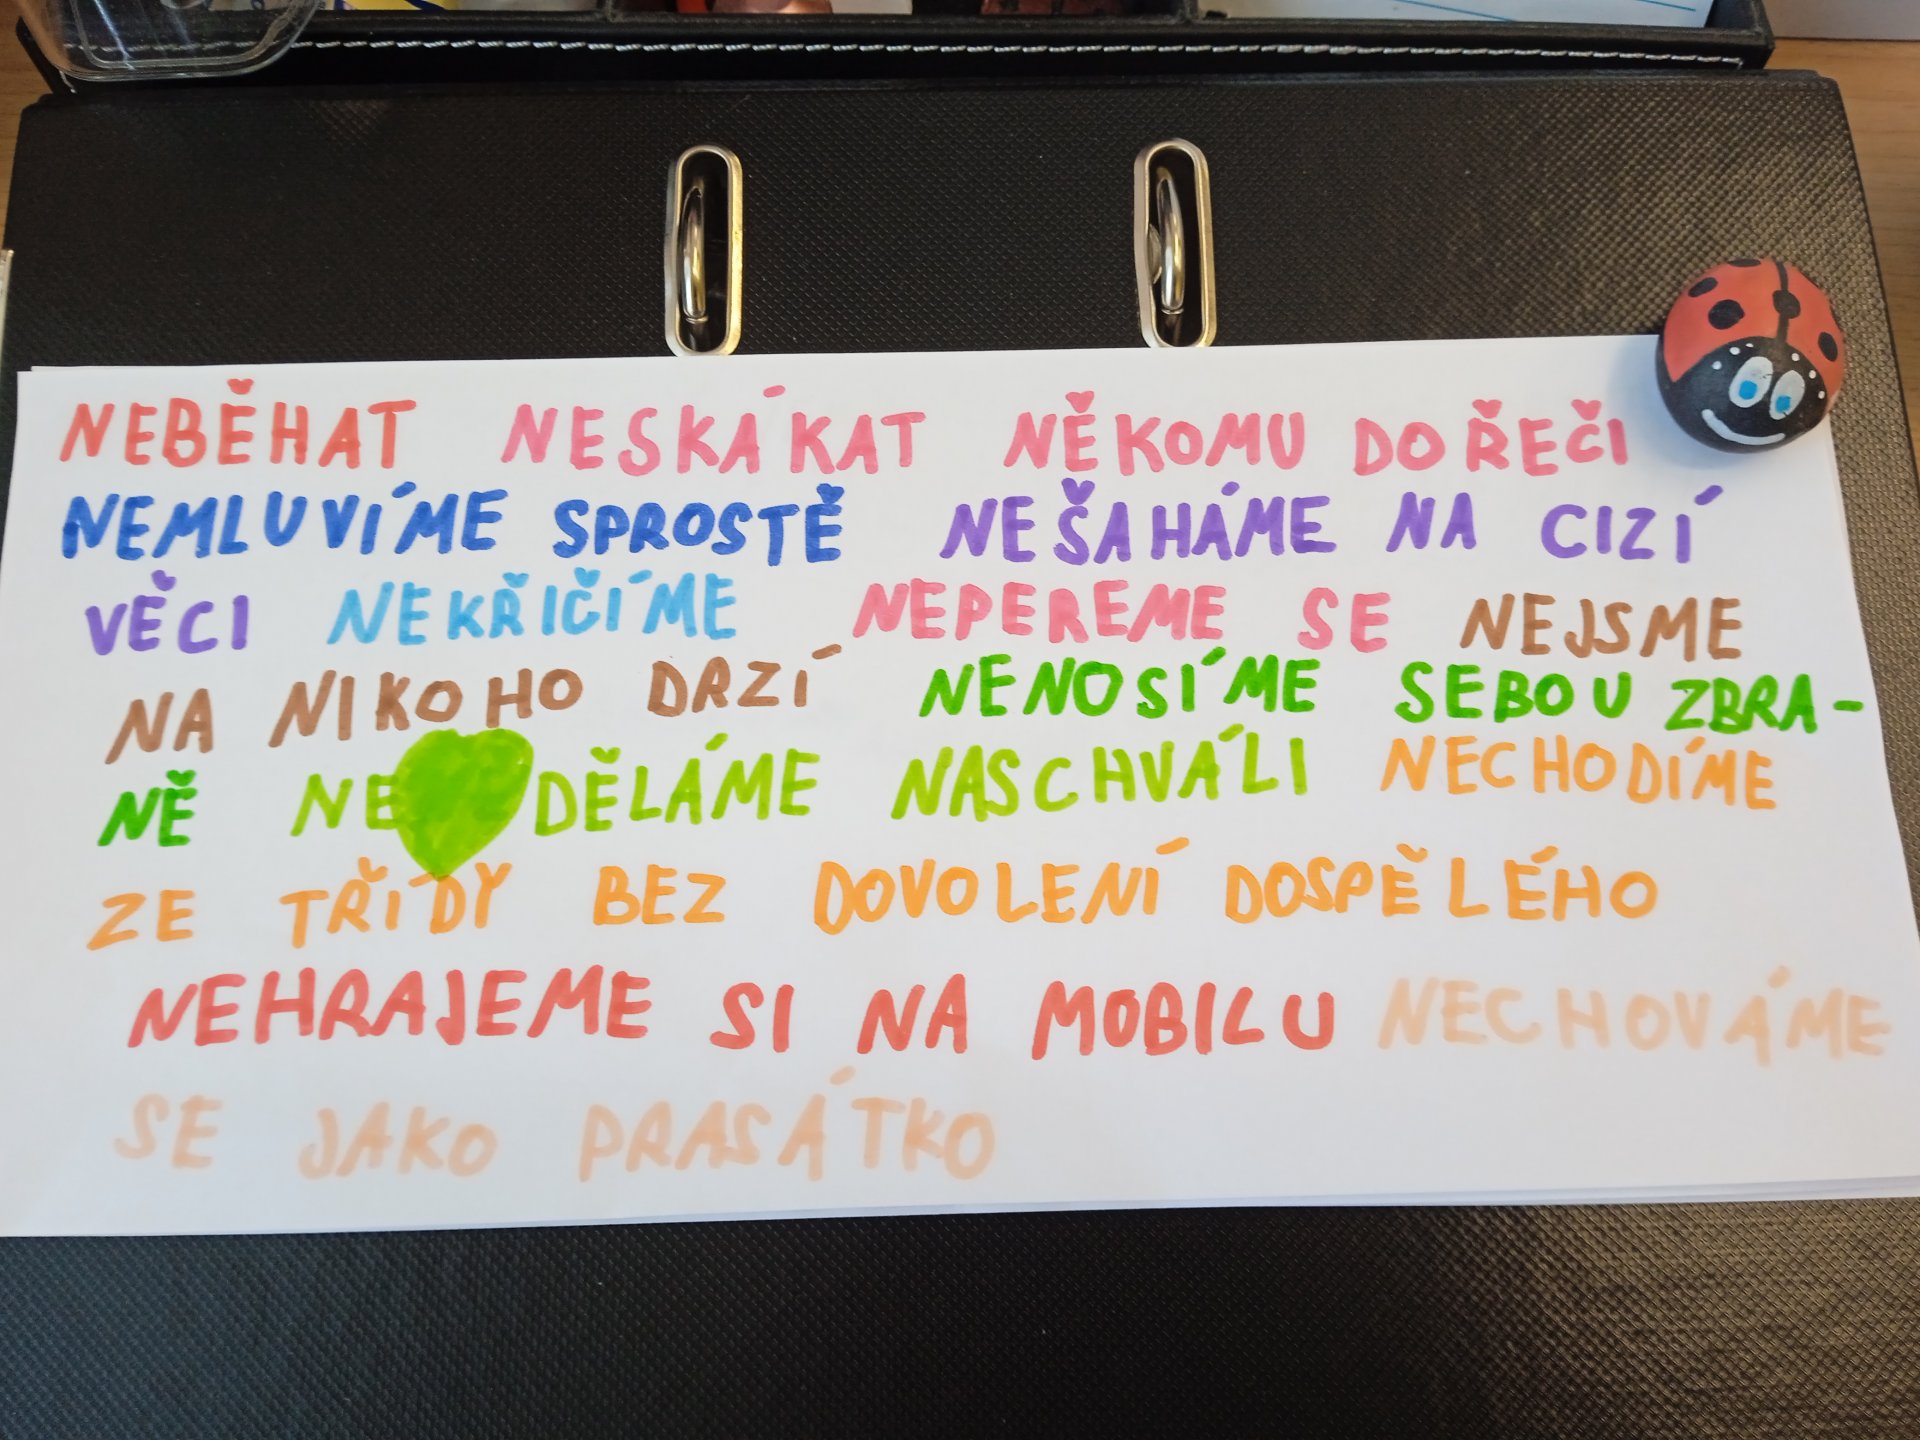 NEBĚHAT NESKÁKAT NĚKOMU DO ŘEČI
NEMLUVÍME SPROSTĚ NEŠAHÁME NA CIZÍ
VĚCI NEKŘIČÍME NEPEREME SE NEJSME
NA NIKOHO DRZÍ NENOSÍME SEBOU ZBRA-
NĚ NEDĚLÁME NASCHVÁLI NECHODÍME
ZE TŘÍDY BEZ DOVOLENÍ DOSPĚLÉHO
NEHRAJEME SI NA MOBILU NECHOVÁME
SE JAKO PRASÁTKO